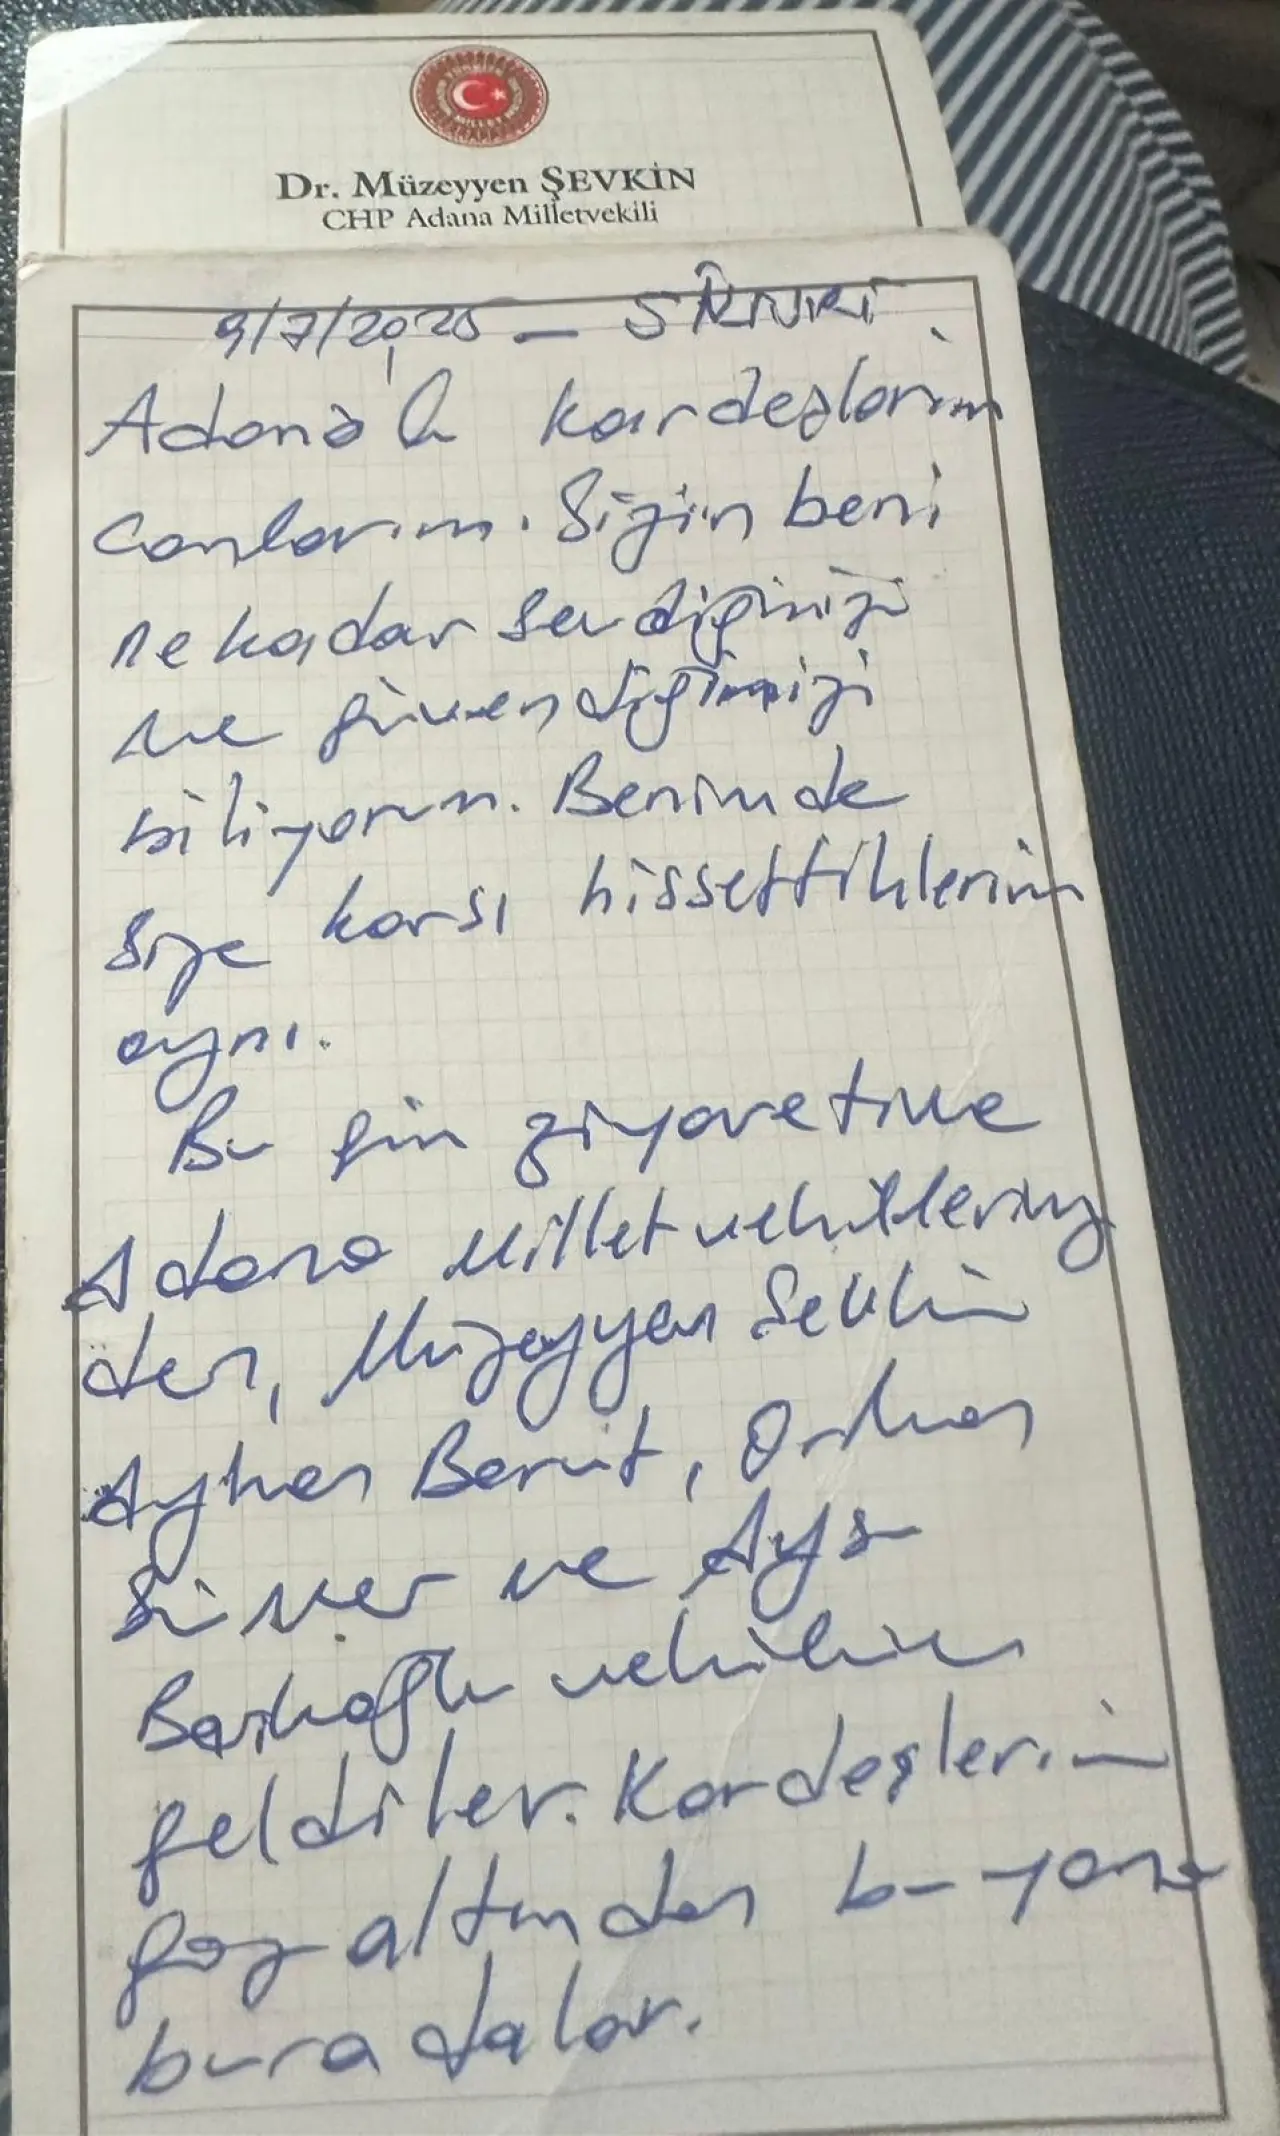 Dr. Müzeyyen ŞEVKİN
CHP Adana Milletvekili
9/7/2025 - SİLİVRİ
Adanalı kardeşlarım
canlarım. Sizin beni
ne kadar sevdiğinizi
ve güvendiğinizi
biliyorum. Benimde
size karşı hissettiklerim
aynı.
Bu gün ziyaretime
Adana Milletvekillerimiz
den, Müzeyyen Şevkin
Ayhan Barut, Orhan
Sümer ve
vekilim
geldiler. Kardeşlerim
göz altından bu yana
buradalar.